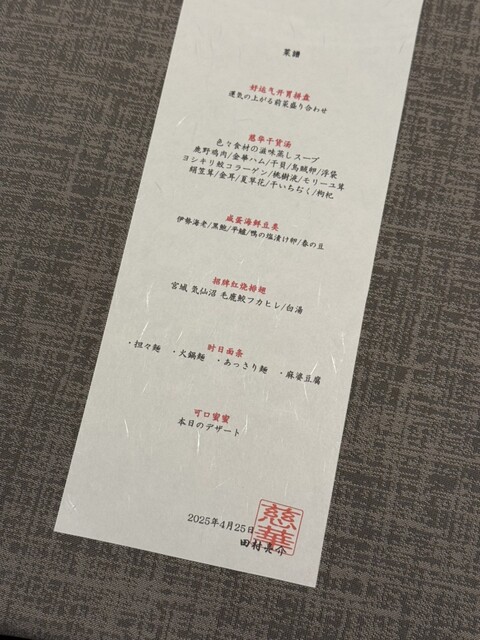 菜譜
好运气开胃拼盘
運気の上がる前菜盛り合わせ
慈华干货汤
色々食材の滋味蒸しスープ
鹿野鶏肉/金華ハム/干貝/烏賊卵/浮袋
ヨシキリ鮫コラーゲン/桃樹液/モリーユ茸
絹笠茸/金耳/夏草花/干いちぢく/枸杞
咸蛋海鲜豆类
伊勢海老/黒鮑/平鱸/鴨の塩漬け卵/春の豆
招牌红烧排翅
宮城 気仙沼 毛鹿鮫フカヒレ/白湯
时日面条
・担々麺 ・火鍋麺 ・あっさり麺 ・麻婆豆腐
可口蜜蜜
本日のデザート
2025年4月25日
慈華
田村亮介